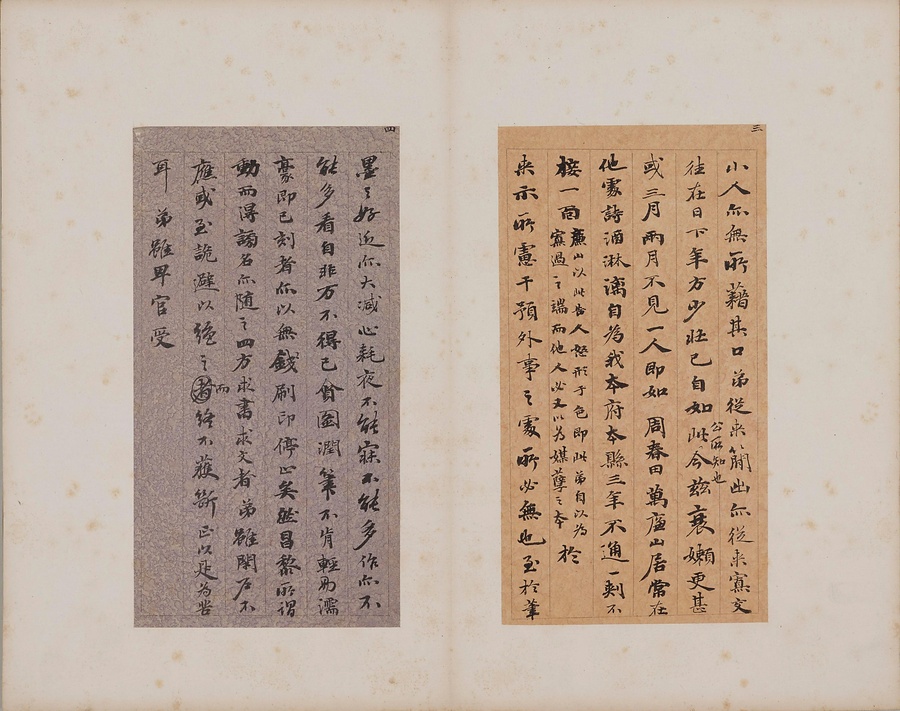 三
小人亦無所藉其口弟從來簡出亦從來寡交
往在日下年方少壯已自如此公所知也今茲衰嬾更甚
或三月兩月不見一人即如周春田萬廉山居常在
他處詩酒淋漓自為我本府本縣三年不通一刺不
接一面廉山以此告人怒形于色即此弟自以為
寡過之端而他人必又以為媒孽之本於
來示所慮干預外事之處所必無也至於筆
四
墨之好近亦大減心耗夜不能寐不能多作亦不
能多看自非万不得已貪圖潤筆不肯輕易濡
豪即已刻者亦以無錢刷印停止矣然昌黎所謂
動而得謗名亦隨之四方求書求文者弟雖閉戶不
應或至詭避以絕之而者終不獲斷正以是為苦
耳弟雖卑官受